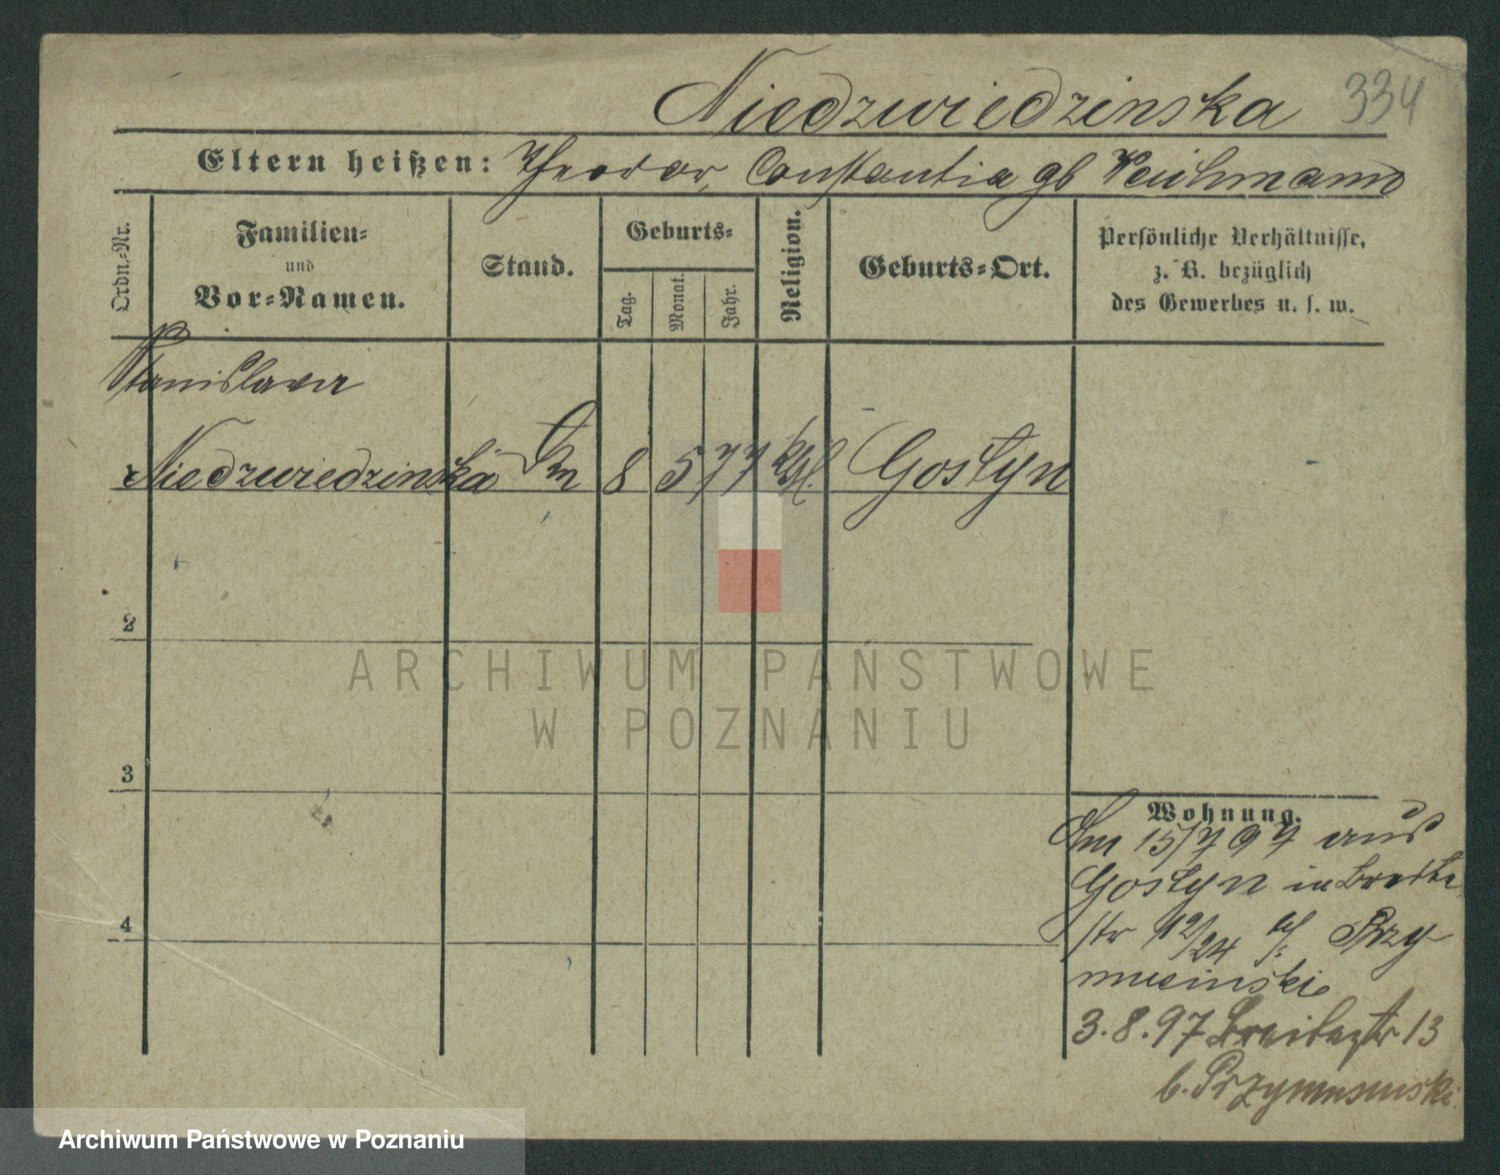 Niedzwiedzinska 334
Eltern heißen: Theodor, Constantia gb
Ordn.-Nr.
Familien-
und
Vor-Namen.
Stand.
Geburts-
Tag.
Monat.
Jahr.
Religion.
Geburts-Ort.
Persönliche Verhältnisse,
z. B. bezüglich
des Gewerbes u. s. w.
Stanislava
Niedzwiedzinska 8 5 77 kath. Gostyn
2
3
4
Wohnung.
Am 15/7 97 aus
Gostyn in Breite
str 12/24 b/: Przy
musinski
3.8.97 Breitestr 13
b. Przymusinski
ARCHIWUM PAŃSTWOWE
W POZNANIU
Archiwum Państwowe w Poznaniu